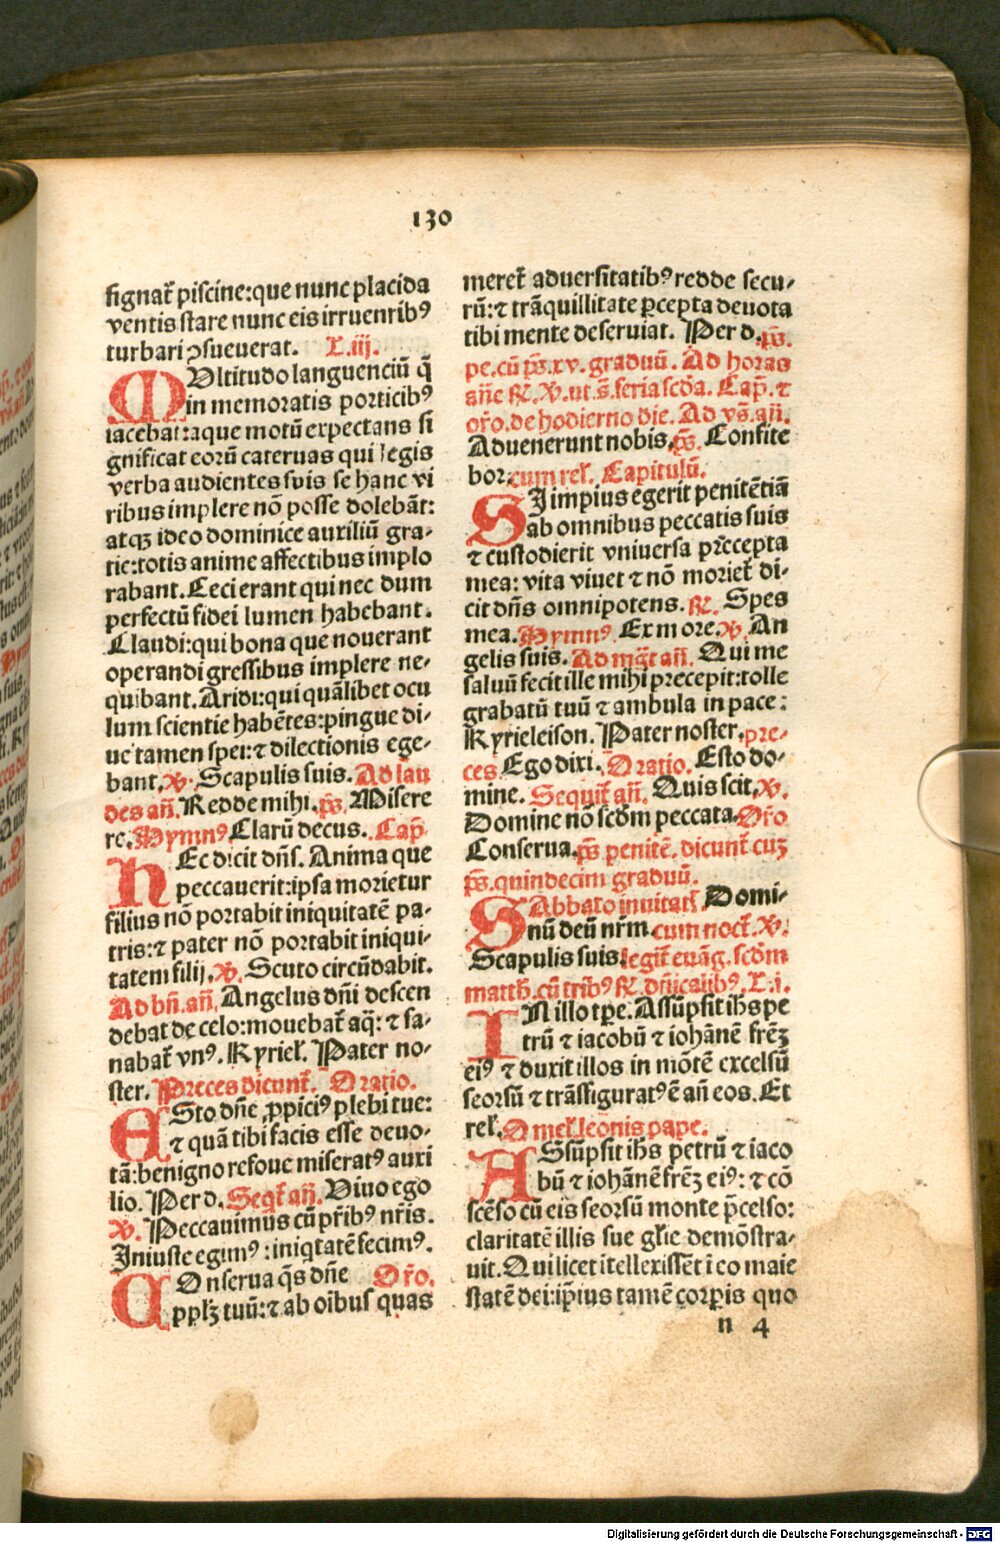 130
ſignat᷑ piſcine:que nunc placida
ventis ſtare nunc eis irruentibꝰ
turbari ꝯſueuerat. L.iij.
MUltitudo languenciū q̄
in memoratis porticibꝰ
iacebat:aque motū expectans ſi
gnificat eorū cateruas qui legis
verba audientes ſuis ſe hanc vi
ribus implere nō poſſe dolebāt:
atqꝫ ideo dominice auxiliū gra⸗
tie:totis anime affectibus implo
rabant. Ceci erant qui nec dum
perfectū fidei lumen habebant.
Claudi:qui bona que nouerant
operandi greſſibus implere ne⸗
quibant. Aridi:qui quālibet ocu
lum ſcientie habētes:pingue di⸗
ue tamen ſpei:⁊ dilectionis ege⸗
bant. ℣. Scapulis ſuis. Ad lau
des añ. Redde mihi. p̄s. Miſere
re. Hymnꝰ Clarū decus. Cap̄.
HEc dicit dn̄s. Anima que
peccauerit:ipſa morietur
filius nō portabit iniquitatē pa⸗
tris:⁊ pater nō portabit iniqui⸗
tatem filij. ℣. Scuto circūdabit.
Ad bn̄. añ. Angelus dn̄i deſcen
debat de celo:mouebat᷑ aq̄: ⁊ ſa⸗
nabat᷑ vnꝰ. Kyriel̕. Pater no⸗
ster. Preces dicunt᷑. Oratio.
ESto dn̄e ꝓpiciꝰ plebi tue:
⁊ quā tibi facis eſſe deuo⸗
tā:benigno refoue miſeratꝰ auxi
lio. Per d. Seqt᷑ añ. Viuo ego
℣. Peccauimus cū pr̄ibꝰ nr̄is.
Iniuste egimꝰ:iniqtatē fecimꝰ.
COnſerua q̄s dn̄e Or̄o.
pplꝫ tuū:⁊ ab oibus quas
meret᷑ aduerſitatibꝰ redde ſecu⸗
rū:⁊ trāquillitate ꝑcepta deuota
tibi mente deſeruiat. Per d. p̄s.
pe.cū p̄s.xv. graduū. Ad horas
añe ℟. ℣. ut.s̄.feria ſcd̄a. Cap̄. ⁊
or̄o.de hodierno die. Ad vs̄. añ.
Aduenerunt nobis. p̄s. Confite
bor.cum rel̕. Capitulū.
SI impius egerit penitētiā
ab omnibus peccatis ſuis
⁊ cuſtodierit vniuerſa p̄cepta
mea: vita viuet ⁊ nō moriet᷑ di⸗
cit dn̄s omnipotens. ℟. Spes
mea. Hymnꝰ. Ex more. ℣. An
gelis ſuis. Ad mg̅t añ. Qui me
ſaluū fecit ille mihi precepit:tolle
grabatū tuū ⁊ ambula in pace:
Kyrieleiſon. Pater noster. pre⸗
ces. Ego dixi. Oratio. Eſto do⸗
mine. Sequit᷑ añ. Quis ſcit. ℣.
Domine nō ſcd̄m peccata. Or̄o
Conſerua. p̄s penitē. dicunt᷑ cuꝫ
p̄s.quindecim graduū.
SAbbato inuitat᷑ Domi⸗
nū deū nr̄m. cum noct᷑. ℣.
Scapulis ſuis. legit᷑ euāg. ſcd̄m
matth. cū tribꝰ ℟. dn̄icalibꝰ. L.i.
IN illo tꝑe. Aſſūpſit ihs̄ pe
trū ⁊ iacobū ⁊ iohānē fr̄eꝫ
eiꝰ ⁊ duxit illos in mōtē excelſū
ſeorſū ⁊ trāſfiguratꝰ ē añ eos. Et
rel̕. Omel̕.leonis pape.
ASſūpſit ihs̄ petrū ⁊ iaco
bū ⁊ iohānē fr̄eꝫ eiꝰ: ⁊ cō
ſcēſo cū eis ſeorſū monte p̄celſo:
claritatē illis ſue gl̄ie demōſtra⸗
uit. Qui licet ītellexiſſēt ī eo maie
ſtatē dei:ip̄ius tamē corꝑis quo
n 4
Digitalisierung gefördert durch die Deutsche Forschungsgemeinschaft - DFG